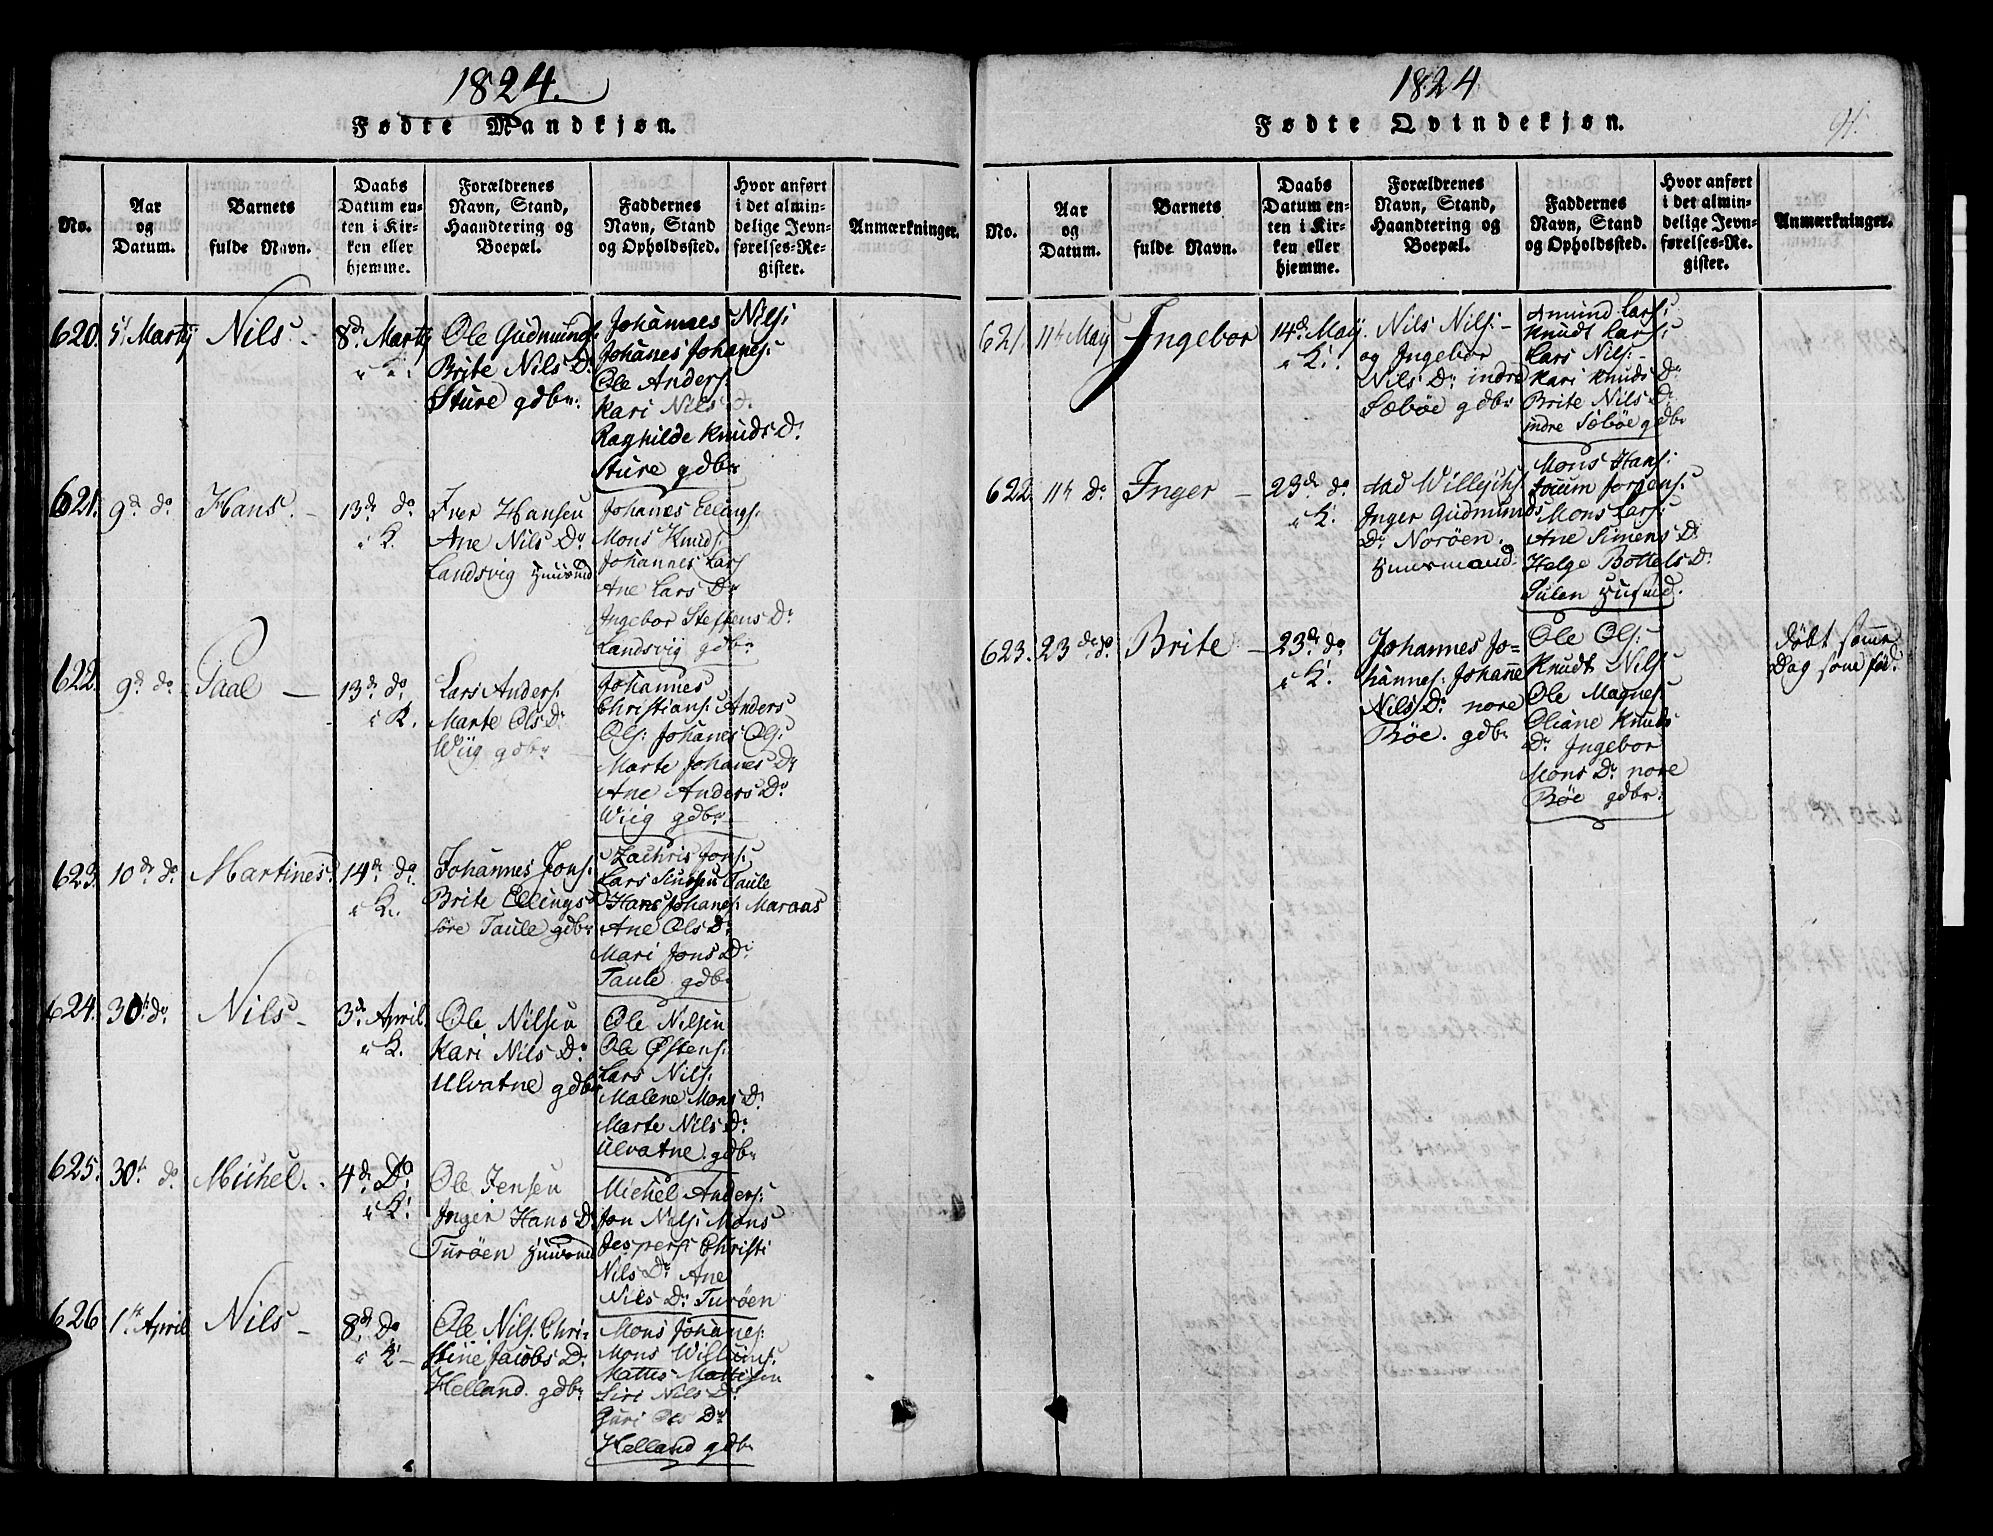 1824.
Fødte Mandkjøn.
No.
Aar
og
Datum.
Barnets
fulde Navn.
Daabs
Datum en-
ten i Kir-
ken eller
hjemme.
Forældrenes
Navn, Stand,
Haandtering og
Boepæl.
Faddernes
Navn, Stand
og Opholdssted.
Hvor anført
i det almin-
delige Jevn-
førelses-Re-
gister.
Anmærkninger.
620. 5t Martij
Nils.
8de Martij
i K.
Ole Gudmunds:
Brite Nils Dr
Sture gdbr:
Johannes Nils:
Johanes Johanes:
Ole Anders:
Kari Nils D.
Raghilde Knuds Dr
Sture gdbr
621. 9d do
Hans.
13de do
i K.
Iver Hansen
Ane Nils Dr
Landsvig Huusmd
Johanes Ellings:
Mons Knuds
Johannes Lars
Ane Lars Dr
Ingebor Steffens Dr
Landsvig gdbr
622. 9d do
Paal
13de do
i K.
Lars Anders:
Marte Ols Dr
Wiig gdbr
Johannes
Christians: Anders
Ols: Johanes Ols:
Marte Johanes Dr
Ane Anders Dr
Wiig gdbr
623. 10de do
Martines.
14de do
i K.
Johannes Jons:
Brite Ellings Dr
søre Taule gdbr
Zachris Jons:
Lars Taule
Hans Johanes: Maraas
Ane Ols Dr
Mari Jons Dr
Taule gdbr
624. 30te do
Nils
3de April
i K.
Ole Nilsen
Kari Nils Dr
Ulvatne gdbr
Ole Nilsen
Ole Østens:
Lars Nils:
Malene Mons Dr
Marte Nils Dr
Ulvatne gdbr
625. 30t do
Michel.
4de Do
i K.
Ole Jensen
Inger Hans Dr
Turøen Huusmd
Michel Anders:
Jon Nils: Mons
Jespers: Christi
Nils Dr Ane
Nils Dr Turøen
626 1te April
Nils
8de Do
i K
Ole Nils: Chri-
stine Jacobs Dr
Helland gdbr
Mons Johanes:
Mons Willums:
Mattis Mattisen
Siri Nils Dr
Guri Ols Dr
Helland gdbr
1824
91.
Fødte Qvindekjøn.
No.
Aar
og
Datum.
Barnets
fulde Navn.
Daabs
Datum en-
ten i Kir-
ken eller
hjemme.
Forældrenes
Navn, Stand,
Haandtering og
Boepæl.
Faddernes
Navn, Stand
og Opholdssted.
Hvor anført
i det almin-
delige Jevn-
førelses-Re-
gister.
Anmærkninger.
621. 11te May
Ingebor
14de May
i K.
Nils Nils:
og Ingebor
Nils Dr indre
Sæbøe gdbr
Amund Lars:
Knudt Lars:
Lars Nils:
Kari Knuds Dr
Brite Nils Dr
indre Sæbøe gdbr
622. 11te do
Inger
23de do
i K.
Inger Gudmunds
Dr Norøen.
Huusmand.
Mons Hans:
Jorgens:
Mons Lars:
Ane Simens D
Helge Bottels Dr
Sulen Huusmd.
623. 23de do
Brite
23de do
i K.
Johannes Jo-
hannes: Johane
Nils Dr nore
Bøe. gdbr
Ole Ols:
Knudt Nils:
Ole Magnes:
Oliane Knuds
Dr Ingebor
Mons Dr nore
Bøe gdbr:
døbt samme
Dag som fød.